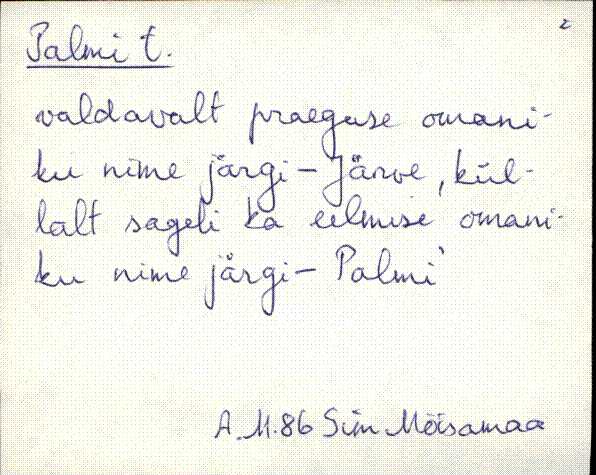 2
Palmi t.
valdavalt praeguse omani-
ku nime järgi – Järve, kül-
lalt sageli ka eelmise omani-
ku nime järgi – Palmi
A.M.86 Siim Mõisamaa